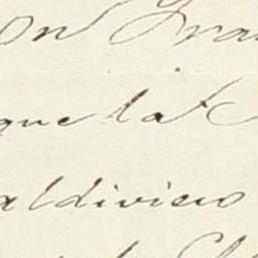 on Fran
que la
aldivieso